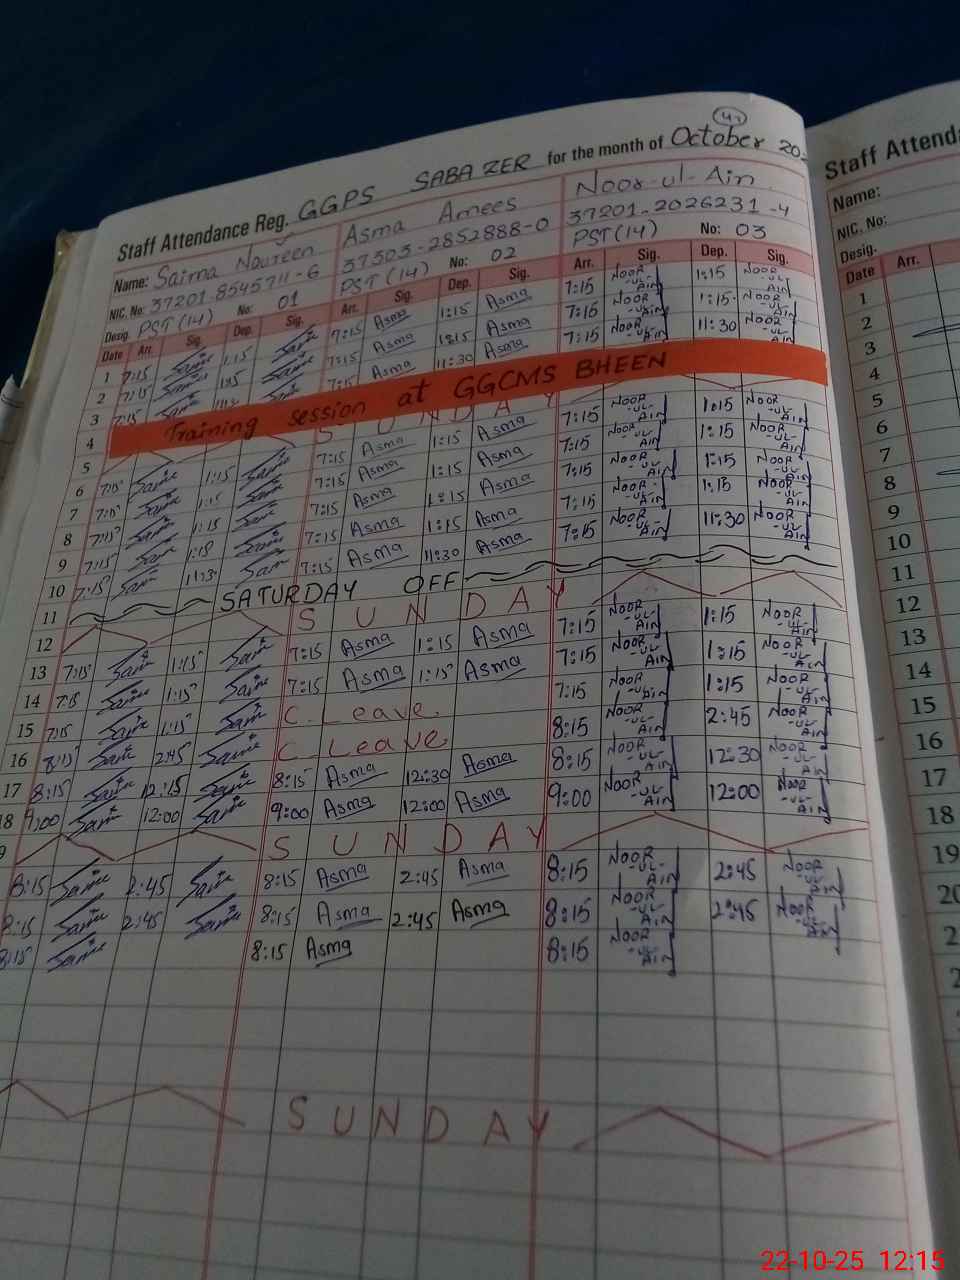 41
Staff Attendance Reg. GGPS SABA ZER for the month of October 20
Name: Saima Noureen Asma Amees Noor-ul-Ain
NIC. No: 37201-8545711-6 37303-2852888-0 37201-2026231-4
Desig. PST (14) No: 01 PST (14) No: 02 PST (14) No: 03
Date Arr. Sig. Dep. Sig. Arr. Sig. Dep. Sig. Arr. Sig. Dep. Sig.
1 7:15 1:15 7:15 Asma 1:15 Asma 7:15 NOOR-UL-AIN 1:15 NOOR-UL-AIN
2 7:15 7:15 Asma 1:15 Asma 7:15 NOOR-UL-AIN 1:15 NOOR-UL-AIN
3 7:15 7:15 Asma 11:30 Asma 7:15 NOOR-UL-AIN 11:30 NOOR-UL-AIN
4 Training session at GGCMS BHEEN
5 SUNDAY
6 7:15 Saime 1:15 7:15 Asma 1:15 Asma 7:15 NOOR-UL-AIN 1:15 NOOR-UL-AIN
7 7:15 1:15 7:15 Asma 1:15 Asma 7:15 NOOR-UL-AIN 1:15 NOOR-UL-AIN
8 7:15 1:15 7:15 Asma 1:15 Asma 7:15 NOOR-UL-AIN 1:15 NOOR-UL-AIN
9 7:15 1:15 7:15 Asma 1:15 Asma 7:15 NOOR-UL-AIN 1:15 NOOR-UL-AIN
10 7:15 11:30 7:15 Asma 11:30 Asma 7:15 NOOR-UL-AIN 11:30 NOOR-UL-AIN
11 SATURDAY OFF
12 SUNDAY
13 7:15 1:15 7:15 Asma 1:15 Asma 7:15 NOOR-UL-AIN 1:15 NOOR-UL-AIN
14 7:15 1:15 7:15 Asma 1:15 Asma 7:15 NOOR-UL-AIN 1:15 NOOR-UL-AIN
15 7:15 1:15 C. Leave. 7:15 NOOR-UL-AIN 1:15 NOOR-UL-AIN
16 8:15 2:45 C. Leave 8:15 NOOR-UL-AIN 2:45 NOOR-UL-AIN
17 8:15 12:15 8:15 Asma 12:30 Asma 8:15 NOOR-UL-AIN 12:30 NOOR-UL-AIN
18 9:00 12:00 9:00 Asma 12:00 Asma 9:00 NOOR-UL-AIN 12:00 NOOR-UL-AIN
9 SUNDAY
8:15 2:45 8:15 Asma 2:45 Asma 8:15 NOOR-UL-AIN 2:45 NOOR-UL-AIN
8:15 2:45 8:15 Asma 2:45 Asma 8:15 NOOR-UL-AIN 2:45 NOOR-UL-AIN
8:15 8:15 Asma 8:15 NOOR-UL-AIN
SUNDAY
Staff Attenda
Name:
NIC. No:
Desig.
Date Arr.
1
2
3
4
5
6
7
8
9
10
11
12
13
14
15
16
17
18
19
20
2
2
22-10-25 12:15